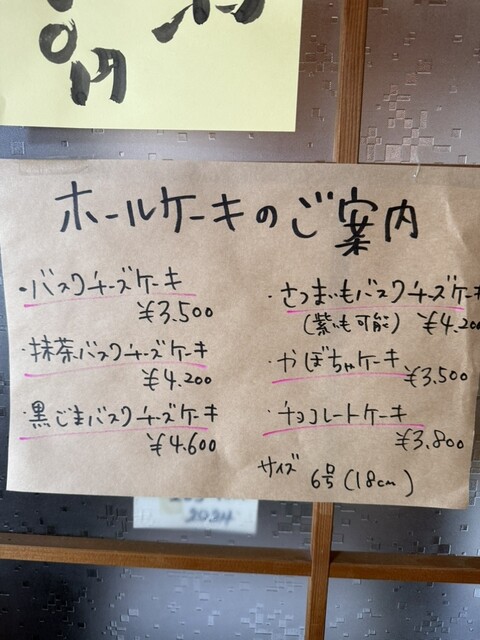 0円
ホールケーキのご案内
・バスクチーズケーキ
¥3.500
・抹茶バスクチーズケーキ
¥4.200
・黒ごまバスクチーズケーキ
¥4.600
・さつまいもバスクチーズケーキ
(紫いも可能) ¥4.200
・かぼちゃケーキ
¥3.500
・チョコレートケーキ
¥3.800
サイズ 6号(18cm)
2024